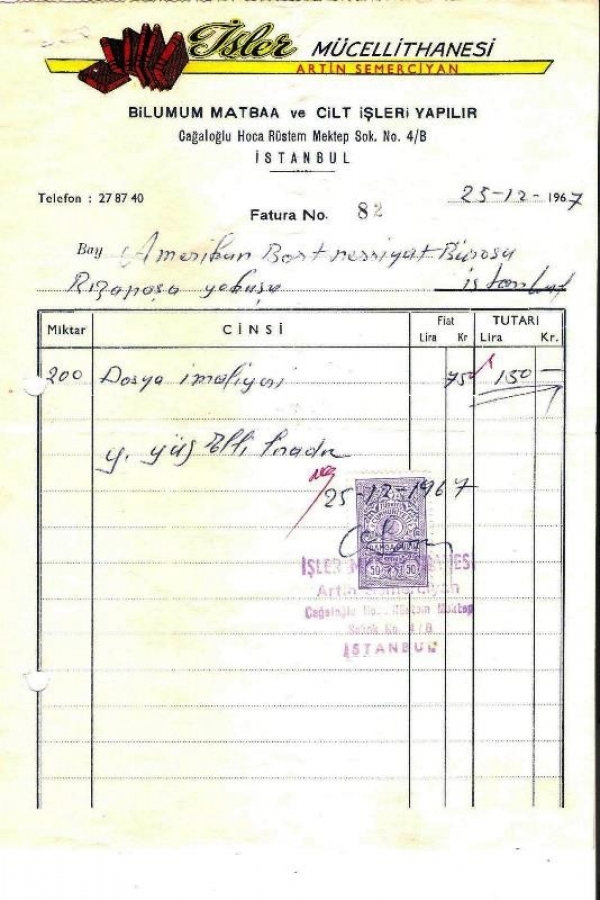 İşler MÜCELLİTHANESİ
ARTİN SEMERCİYAN
BİLUMUM MATBAA ve CİLT İŞLERİ YAPILIR
Cağaloğlu Hoca Rüstem Mektep Sok. No. 4/B
İSTANBUL
Telefon : 27 87 40
25-12-1967
Fatura No. 82
Bay Amerikan Bort neşriyat Bürosu
Rızapaşa yokuşu istanbul
Miktar CİNSİ Fiat Lira Kr TUTARI Lira Kr.
200 Dosya imaliyesi 75 150 —
Y. yüz Elli liradır
25-12-1967
50 50
İŞLER
Artin Semerciyan
Cağaloğlu Hoca Rüstem Mektep
Sokak No. 4/B
İSTANBUL